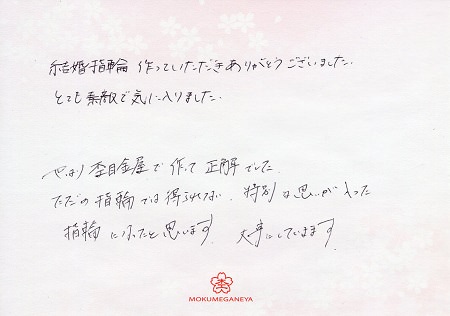 結婚指輪 作っていただきありがとうございました.
とても素敵で気に入りました.
やはり杢目金屋で作って正解でした
ただの指輪では得られない、特別な思いが入った
指輪になったと思います. 大事にしていきます.
杢
MOKUMEGANEYA